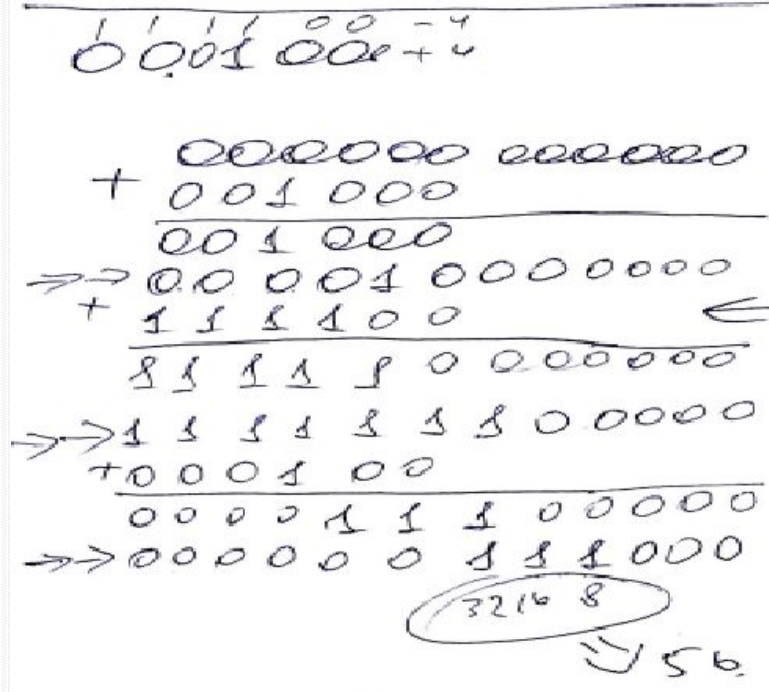 1 1 1 1 0 0 - 4
0 0 0 1 0 0 + 4
000000 000000
+ 001 000
001 000
→→ 00 001 0000000
+ 1 1 1 1 0 0
1 1 1 1 1 0 000000
→→ 1 1 1 1 1 1 1 0 0000
+ 0 0 0 1 0 0
0 0 0 0 1 1 1 00000
→→ 0 0 0 0 0 0 1 1 1 000
32 16 8
56